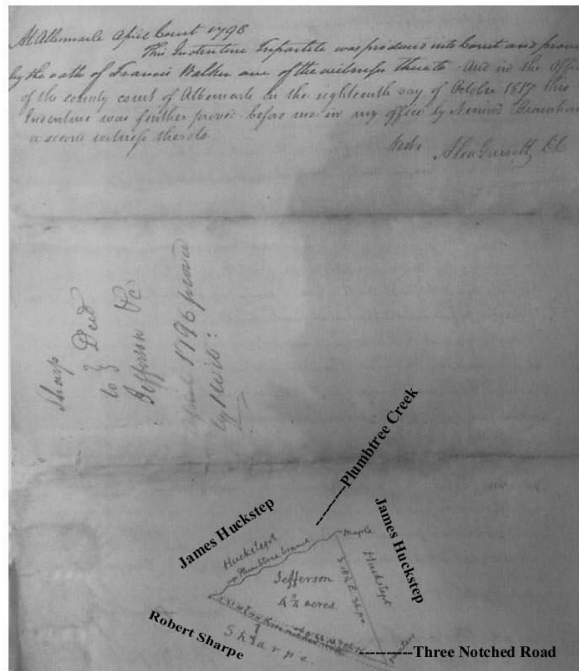 At Albemarle April Court 1796
This Indenture Tripartite was produced into Court and proved
by the oath of Francis Walker one of the witnesses thereto And in the Office
of the county court of Albemarle on the eighteenth day of October 1817 this
Indenture was further proved before me in my office by
a second witness thereto
Teste Alex Garrett CC
Sharp
to } Deed
Jefferson &c
April 1796 proved
by 1 Wits:
Plumbtree Creek
James Huckstep
James Huckstep
Huckstep's
Plumbtree branch
Maple
Huckstep's
Jefferson
4 3/4 acres.
Sharpe.
Robert Sharpe
Three Notched Road